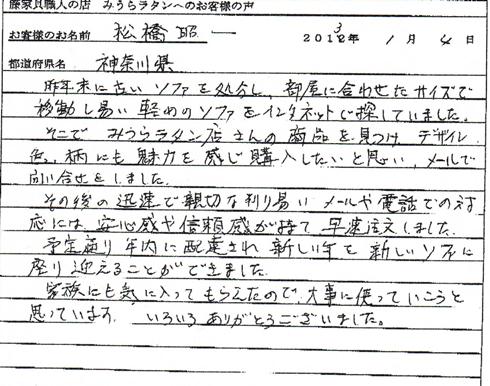 籐家具職人の店 みうらラタンへのお客様の声
お客様のお名前 松橋 昭一 2013年 1月 4日
都道府県名 神奈川県
昨年末に古いソファを処分し、部屋に合わせたサイズで
移動し易い軽めのソファをインタネットで探していました。
そこで みうらラタン店さんの商品を見つけ、デザイン
色、柄にも魅力を感じ購入したいと思い、メールで
問い合せをしました。
その後の迅速で親切な判り易い メールや電話での対
応には、安心感や信頼感が持て 早速注文しました。
予定通り年内に配達され 新しい年を新しいソファに
座り迎えることができました。
家族にも気に入ってもらえたので、大事に使っていこうと
思っています。いろいろありがとうございました。